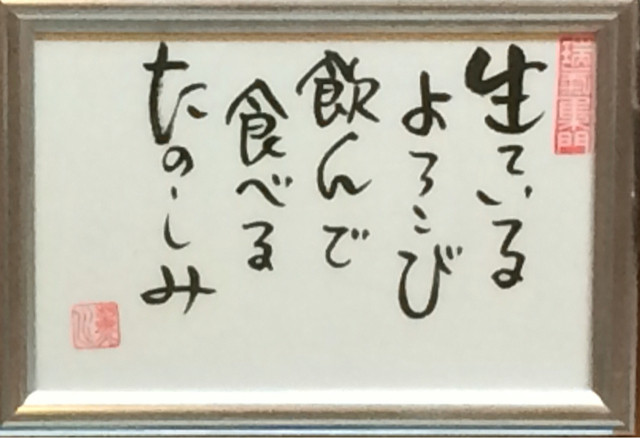 生ている
よろこび
飲んで
食べる
たのしみ